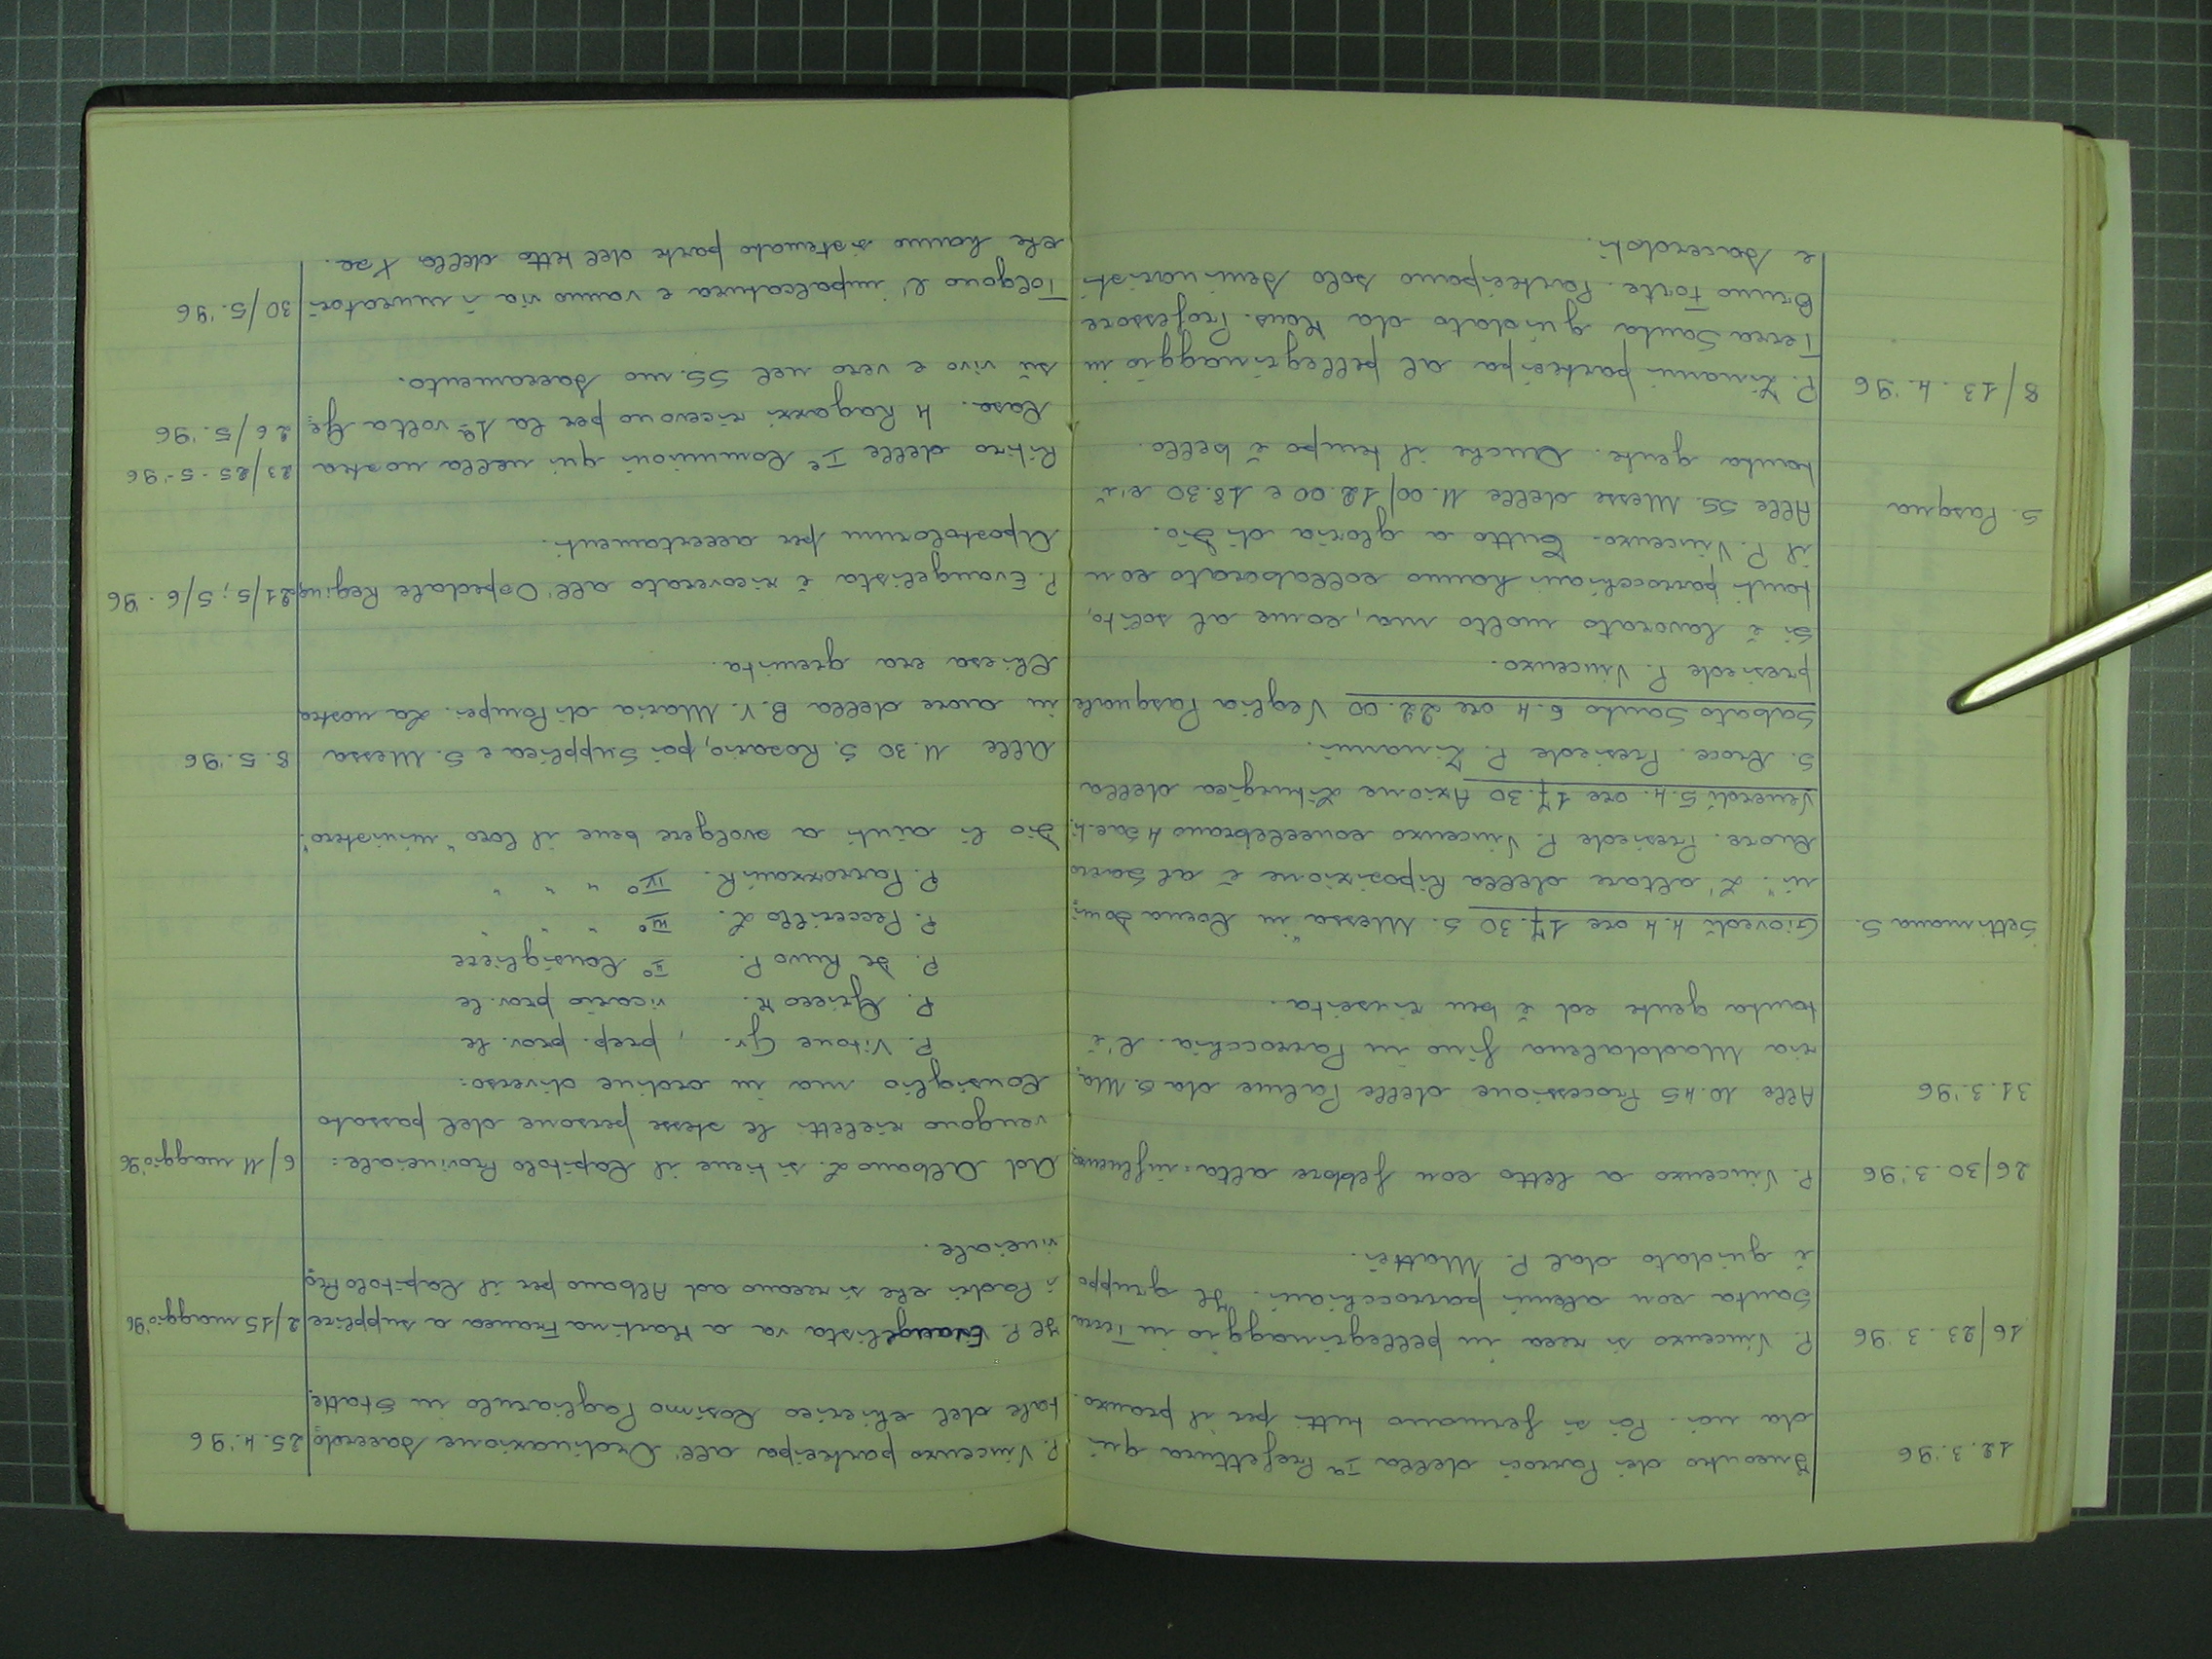 12.3.'96 Incontro dei Parroci della Iª Prefettura qui
da noi. Poi si fermano tutti per il pranzo.
16/23.3.'96 P. Vincenzo si reca in pellegrinaggio in Terra
Santa con alcuni parrocchiani. Il gruppo
è guidato dal P. Mattei.
26/30.3.'96 P. Vincenzo a letto con febbre alta: influenza
31.3.'96 Alle 10.45 Processione delle Palme da S. Ma,
ria Maddalena fino in Parrocchia. C'è
tanta gente ed è ben riuscita.
Settimana S. Giovedì 4.4 ore 17.30 S. Messa "in Coena Domi,
ni". L'altare della Riposizione è al Sacro
Cuore. Presiede P. Vincenzo concelebrano 4 Sac.ti.
Venerdì 5.4. ore 17.30 Azione Liturgica della
S. Croce. Presiede P. Zinanni.
Sabato Santo 6.4 ore 22.00 Veglia Pasquale
presiede P. Vincenzo.
Si è lavorato molto ma, come al solito,
tanti parrocchiani hanno collaborato con
il P. Vincenzo. Tutto a gloria di Dio.
S. Pasqua Alle SS. Messe delle 11.00/12.00 e 18.30 c'è
tanta gente. Anche il tempo è bello.
8/13.4.'96 P. Zinanni partecipa al pellegrinaggio in
Terra Santa guidato da Mons. Professore
Bruno Forte. Partecipano solo seminaristi
e sacerdoti.
P. Vincenzo partecipa all'Ordinazione Sacerdo, 25.4.'96
tale del chierico Cosimo Pagliarulo in Statte.
Il P. Evangelista va a Martina Franca a supplire 2/15 maggio '96
i Padri che si recano ad Albano per il Capitolo Pro,
vinciale.
Ad Albano L. si tiene il Capitolo Provinciale: 6/11 maggio '96
vengono rieletti le stesse persone del passato
Consiglio ma in ordine diverso:
P. Vitone Gv. , prep. prov.le
P. Grieco M. vicario prov.le
P. De Ruvo P. II° Consigliere
P. Peccerillo L. III° " "
P. Parrozzani R. IV° " " "
Dio li aiuti a svolgere bene il loro "ministero".
Alle 11.30 S. Rosario, poi Supplica e S. Messa 8.5.'96
in onore della B.V. Maria di Pompei. La nostra
Chiesa era gremita.
P. Evangelista è ricoverato all'Ospedale Regina 21/5; 5/6.'96
Apostolorum per accertamenti.
Ritiro delle Ie Comunioni qui nella nostra 23/25-5-'96
Casa. 4 Ragazzi ricevono per la 1ª volta Ge, 26/5.'96
sù vivo e vero nel SS.mo Sacramento.
Tolgono l'impalcatura e vanno via i muratori 30/5.'96
che hanno sistemato parte del tetto della